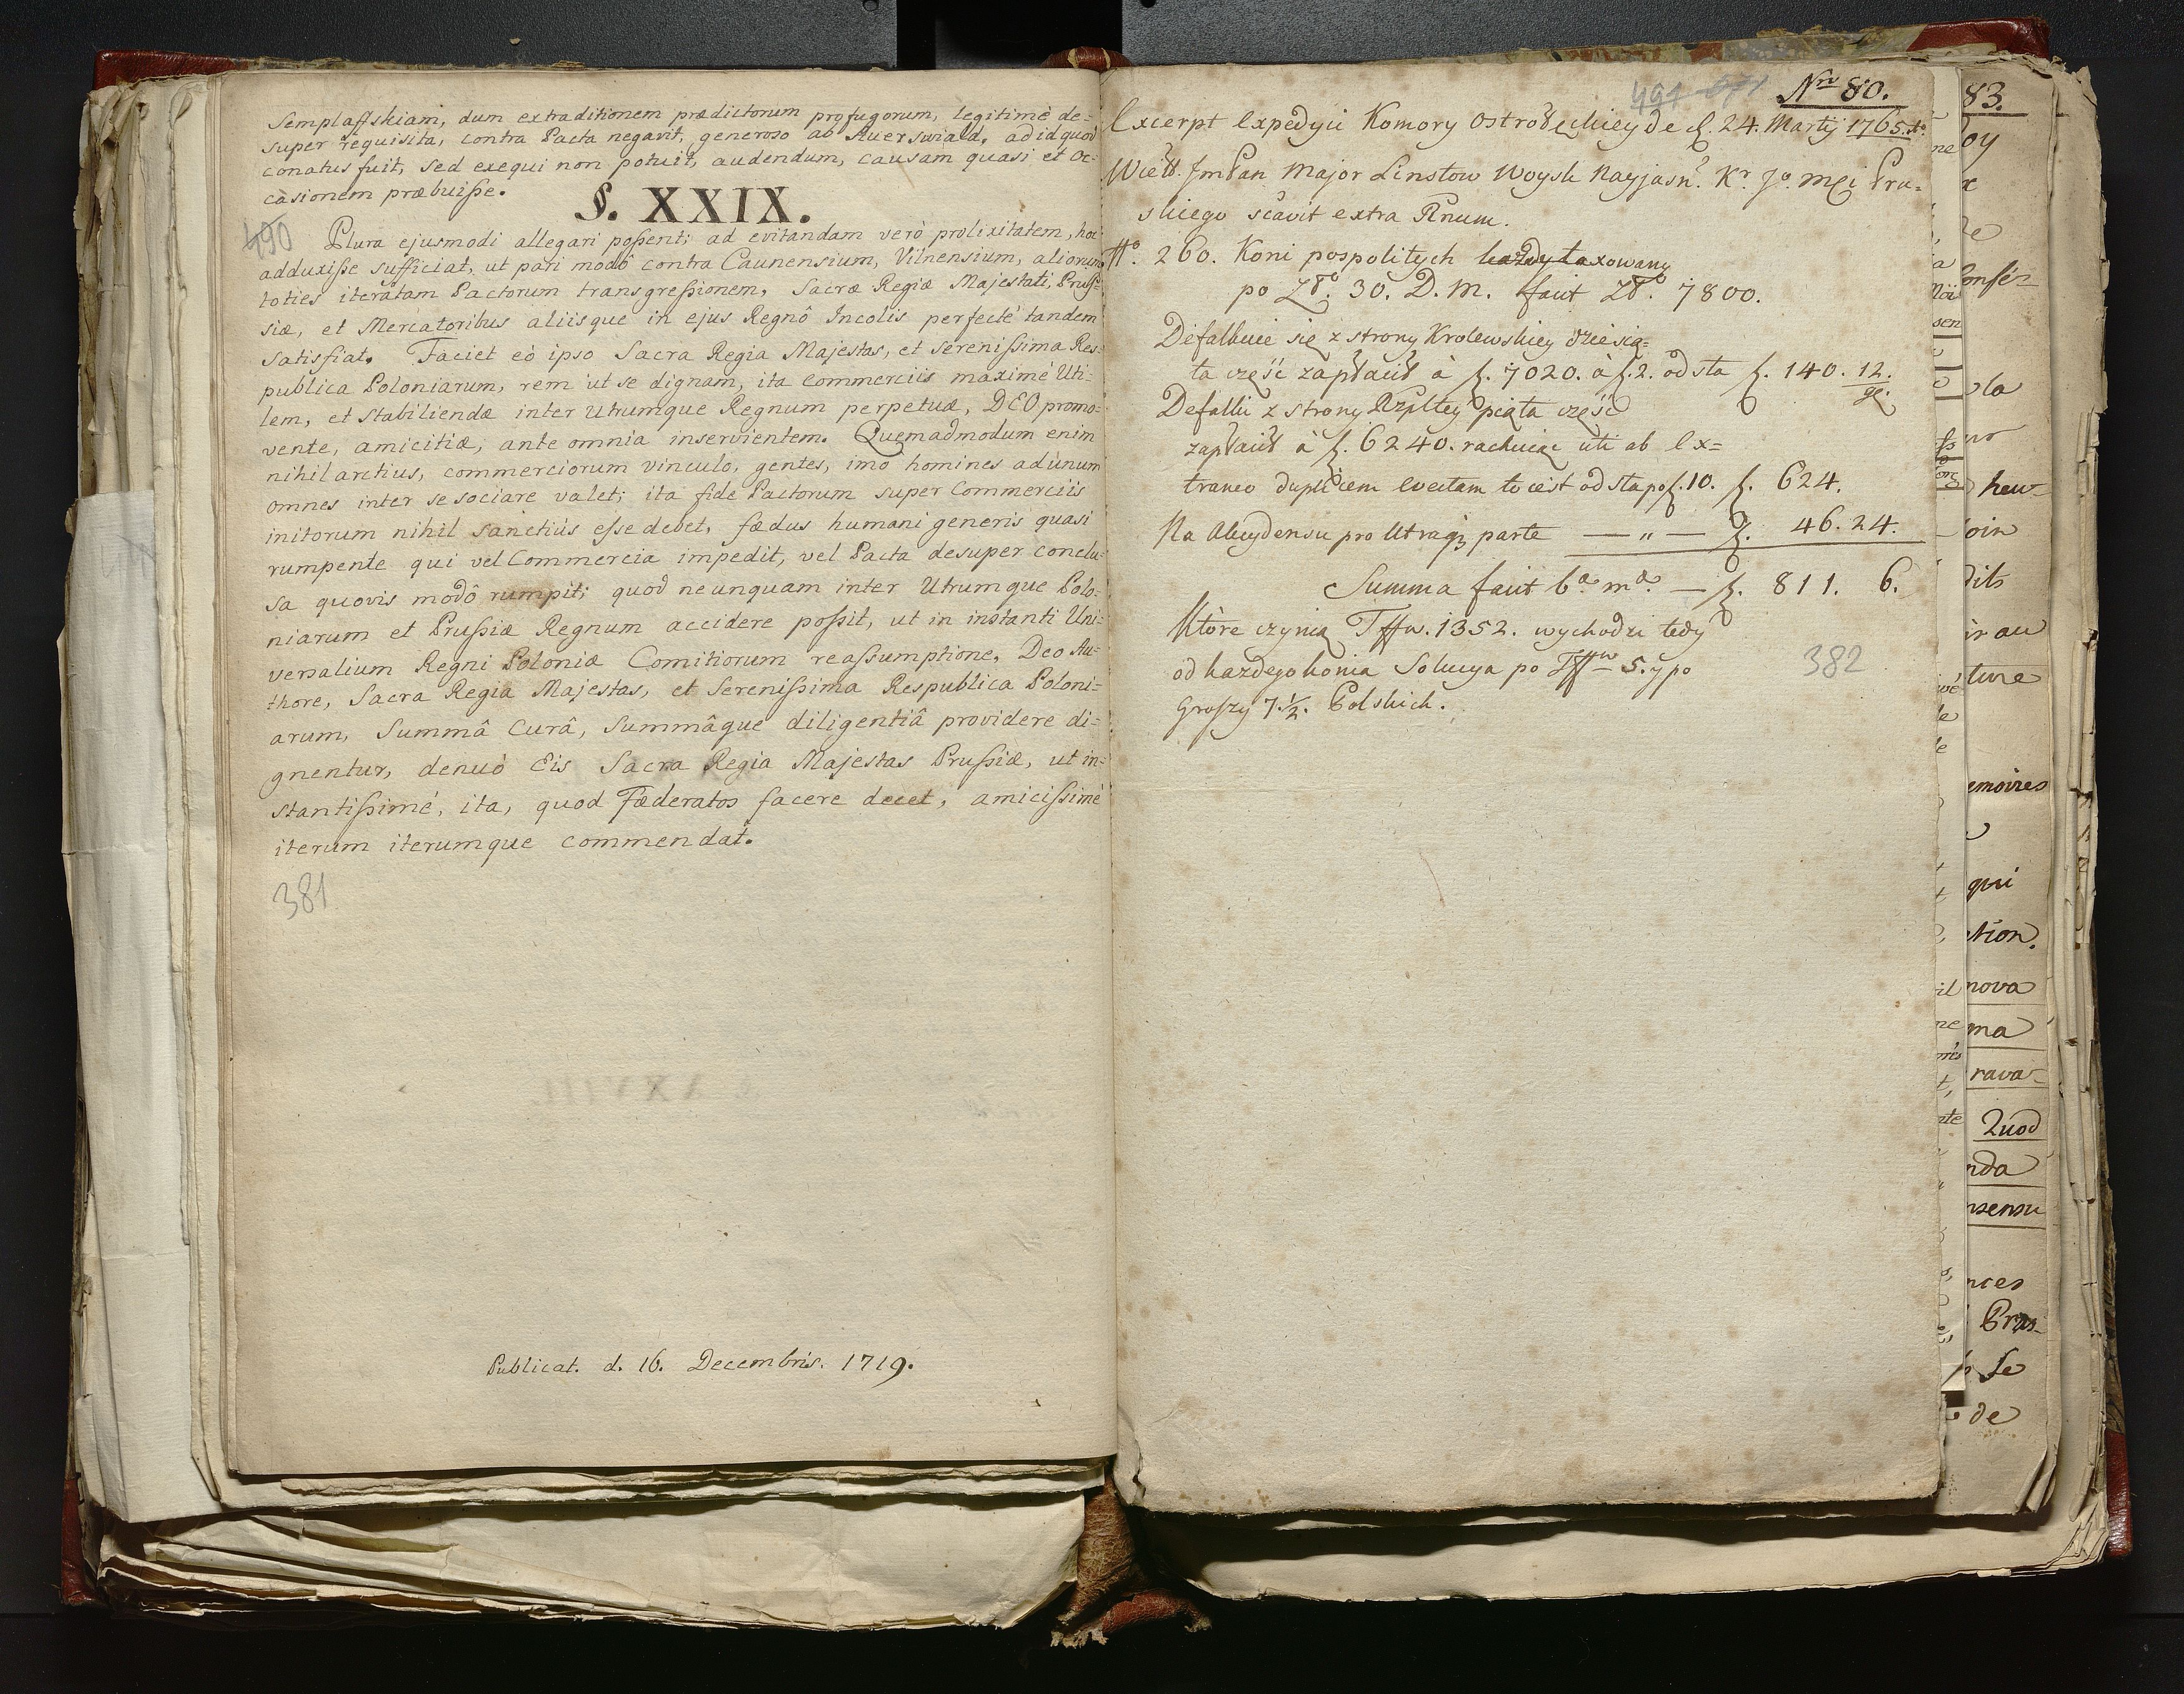 Semplaffskiam, dum extraditionem prædictorum profugorum, legitimè de=
super requisita, contra Pacta negavit, generoso ab Auerswald, ad id quod
conatus fuit, sed exequi non potuit, audendum, causam quasi et oc=
casionem præbuisse.
§. XXIX.
490
Plura ejusmodi allegari possent; ad evitandam verò prolixitatem, hoc
adduxisse sufficiat, ut pari modô contra Caunensium, Vilnensium, aliorum
toties iteratam Pactorum transgressionem, Sacræ Regiæ Majestati Prus=
siæ, et Mercatoribus aliisque in ejus Regnô Incolis perfectè tandem
satisfiat. Faciet eò ipso Sacra Regia Majestas, et Serenissima Res=
publica Poloniarum, rem ut se dignam, ita commerciis maximè Uti=
lem, et stabiliendæ inter Utrumque Regnum perpetuæ, DEO promo=
vente, amicitiæ, ante omnia inservientem. Quemadmodum enim
nihil arctius, commerciorum vinculo, gentes, imo homines ad unum
omnes inter se sociare valet; ita fide Pactorum super Commerciis
initorum nihil sanctius esse debet, fœdus humani generis quasi
rumpente qui vel Commercia impedit, vel Pacta desuper conclu=
sa quovis modô rumpit; quod ne unquam inter Utrumque Polo=
niarum et Prussiæ Regnum accidere possit, ut in instanti Uni=
versalium Regni Poloniæ Comitiorum reassumptione, Deo Au=
thore, Sacra Regia Majestas, et Serenissima Respublica Poloni=
arum, Summâ Curâ, Summâque diligentiâ providere di=
gnentur, denuò Eis Sacra Regia Majestas Prussiæ, ut in=
stantissimè, ita, quod Fœderatos facere decet, amicissimè
iterum iterumque commendat.
381
Publicat. d. 16. Decembris. 1719.
491 671 Nro 80.
Excerpt Expedycii Komory Ostrołęckiey de d. 24. Martij 1765.to
Wielł. JmPan Major Linstow Woysk Nayjasn. Kr. Jo. Mci Pru=
skiego sc̃avit extra Rnum.
No. 260. Koni pospolitych każdy taxowany
po Zło. 30. D. M. facit Zło. 7800.
Defalkuie się z strony Krolewskiey dziesią=
ta część zapłacił à f. 7020. à f. 2. od sta f. 140. 12.
ge.
Defalkt z strony Rzpltey piąta część
zapłacił à f. 6240. rachuiąc uti ab Ex=
traneo duplicem Evectam to iest od sta po f. 10. f. 624.
Na Akcydensu pro Utraqz parte — „ — f. 46. 24.
Summa facit ba. ma. — f. 811. 6.
Które czynią Tffw. 1352. wychodzi tedy
od każdego konia Solucya po Tffw 5. y po
Groszy 7. 1/2. Polskich.
382
83.
oy
la
oin
dits
ir au
ture
emoires
qui
tion.
nova
ma
rava=
Quod
nda
nsensu
nces
Se
de